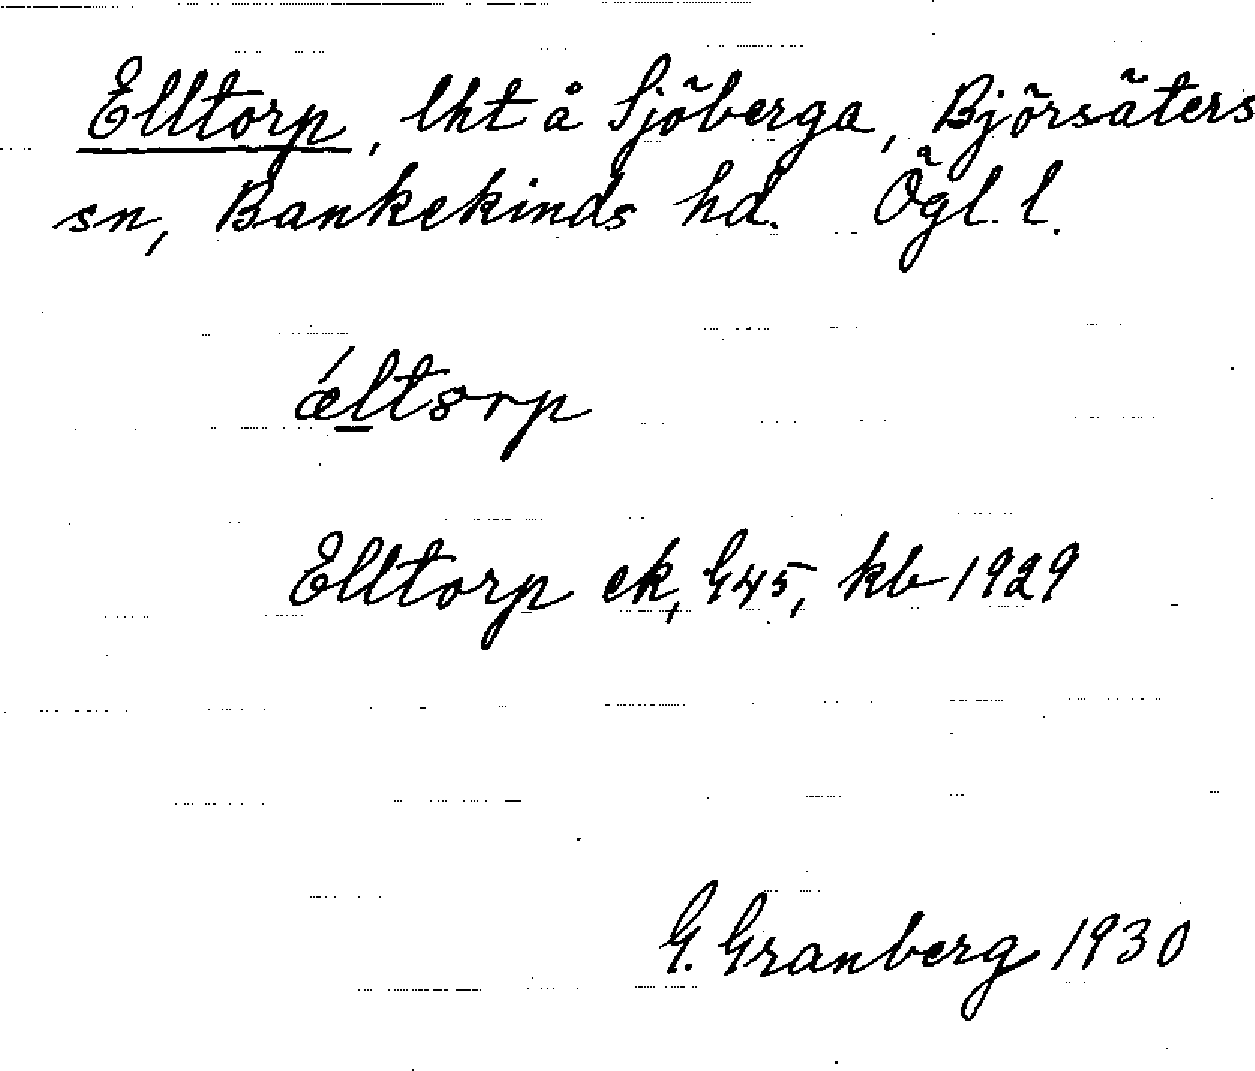 Elltorp, lht å Sjöberga, Björsäters
sn, Bankekinds hd. Ögl. l.
ǽltorp
Elltorp ek, G45, kb 1929
G. Granberg 1930